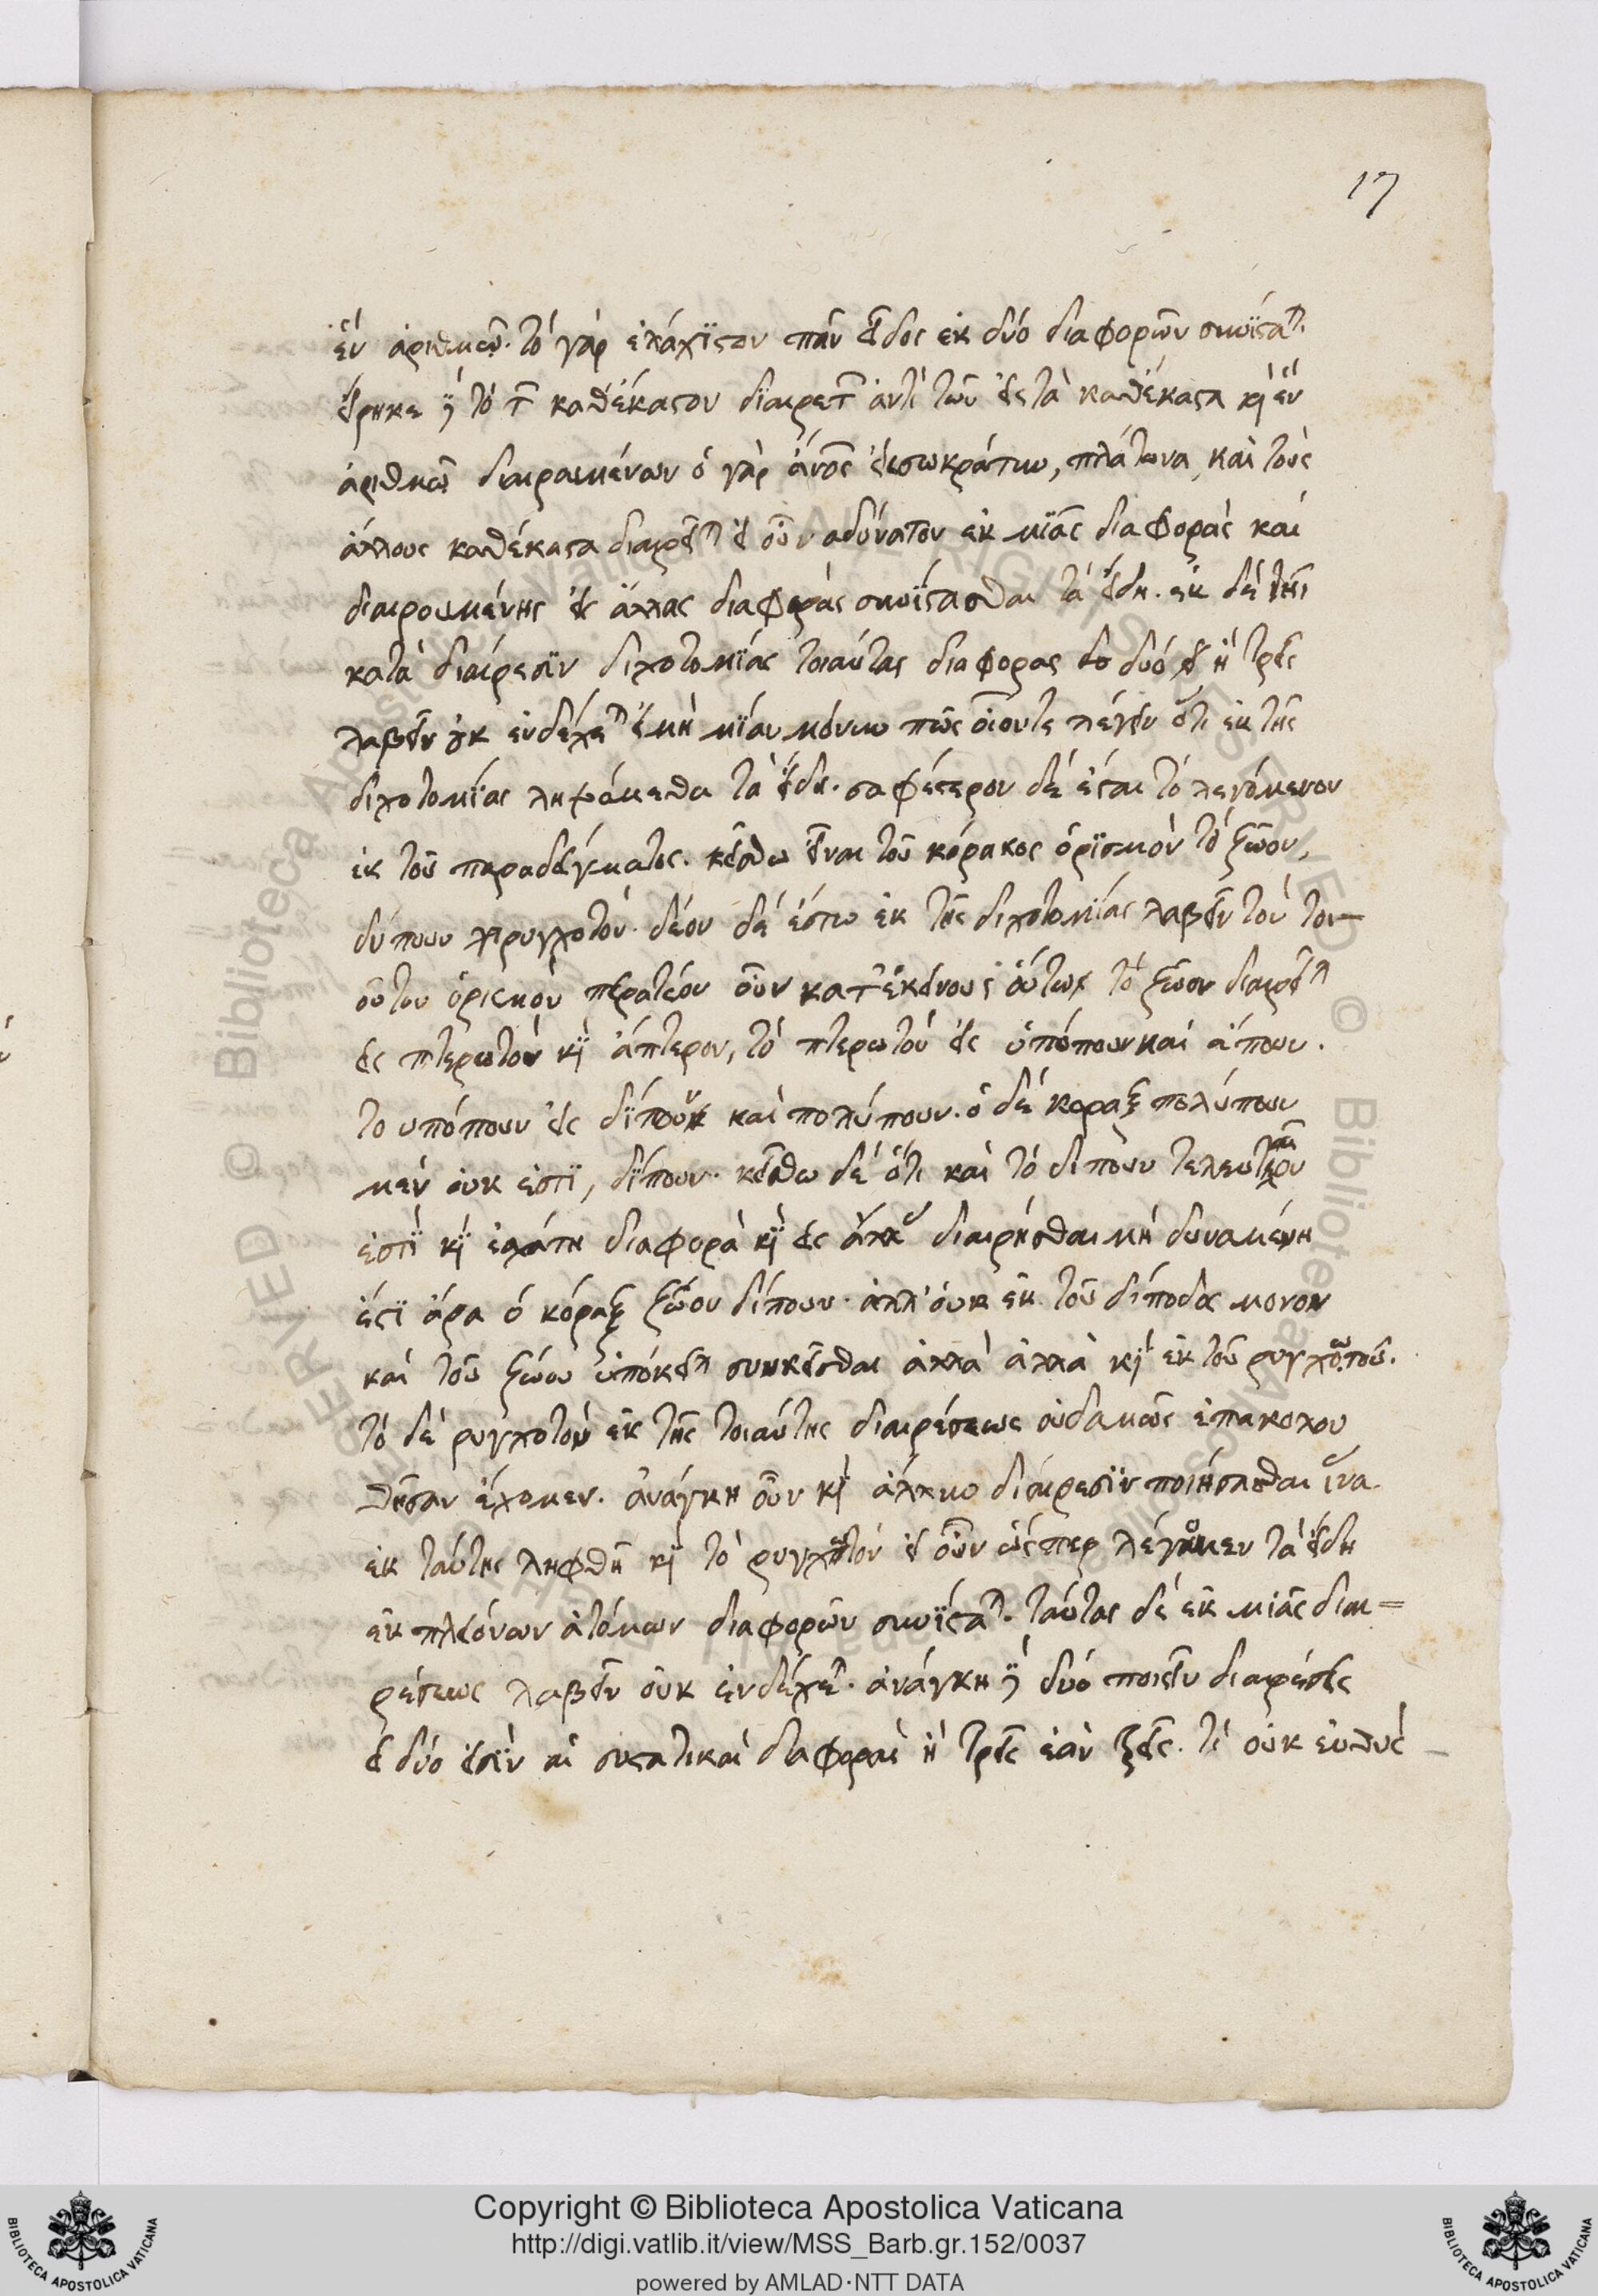 17
ἓν ἀριθμῶ. τὸ γὰρ ἐλάχιστον πᾶν εἶδος ἐκ δύο διαφορῶν συνίσταται.
εἴρηκε γὰρ τὸ καθέκαστον ἀντὶ τῶν εἰς τὰ καθέκαστα καὶ ἓν
ἀριθμῶ διαιρουμένων ὁ γὰρ ἄνος εἰς σωκράτην, πλάτωνα, καὶ τοὺς
ἄλλους καθέκαστα διαιρεῖται εἰ οὖν αδύνατον ἐκ μϊᾶς διαφορᾶς καὶ
διαιρουμένης εἰς ἄλλας διαφορὰς συνΐστασθαι τὰ εἴδη. ἐκ δὲ τῆς
κατὰ διαίρεσϊν διχοτομΐας τοιαύτας διαφορας δύο ἢ τρεῖς
λαβεῖν οὐκ ἐνδέχεται εἰ μὴ μΐαν μόνην πῶς οἷοντε λέγειν ὅτι ἐκ τῆς
διχοτομΐας ληψόμεθα τὰ εἴδη. σαφέστερον δὲ ἔσται τὸ λεγόμενον
ἐκ τοῦ παραδείγματος. κείσθω εἶναι τοῦ κόρακος ὁρϊσμὸν τὸ ζῶον,
δύπουν ρυγχοτόν. δέον δέ ἐστιν ἐκ τῆς διχοτομΐας λαβεῖν τὸν τοι-
οῦτον ὁρισμὸν πειρατέον οὖν κατ' ἐκείνους οὕτως τὸ ζῶον διαιρεῖται
εἰς πτερωτὸν κϊ ἄπτερον, τὸ πτερωτὸν εἰς ὑπόπουν καὶ ἄπουν.
το υπόπουν εἰς δΐπουν καὶ πολύπουν. ὁ δὲ κοραξ πολύπουν
μὲν ουκ ἐστϊ, δΐπουν. κείσθω δὲ ὅτι καὶ τὸ διπουν
ἐστϊ κϊ ἐσχάτη διαφορὰ κϊ εἰς ἄλλην διαιρῆσθαι μὴ δυναμένη
ἐστϊ ἄρα ὁ κόραξ ζῶον δίπουν. ἀλλ' οὐκ ἐκ τοῦ δίποδος μονον
καὶ τοῦ ζώου ὑπόκειται συνκεῖσθαι ἀλλὰ ἀλλὰ κϊ ἐκ τοῦ
τὸ δὲ ρυγχοτὸν ἐκ τῆς τοιαύτης διαιρέσεως οὐδαμῶς ἐπακολου
θῆσαν ἔχομεν. ἀνάγκη οὖν κϊ ἄλλην διαίρεσϊν ποιήσασθαι ἵνα
ἐκ ταύτης ληφθῇ κϊ τὸ ρυγχωτόν εἰ οὖν ὥσπερ λέγομεν τὰ εἴδη
ἐκ πλειόνων ἀτόμων διαφορῶν συνΐσταται. ταύτας δὲ ἐκ μιᾶς διαι=
ρέσεως λαβεῖν οὐκ ἐνδέχεται. ἀνάγκη γὰρ δύο ποιεῖν διαιρέσεις
εἰ δύο εἰσὶν αἱ συστατικαὶ διαφοραὶ ἢ τρεῖς ἐὰν τρεῖς. τί οὐκ εὐθὺς
Copyright © Biblioteca Apostolica Vaticana
http://digi.vatlib.it/view/MSS_Barb.gr.152/0037
powered by AMLAD·NTT DATA